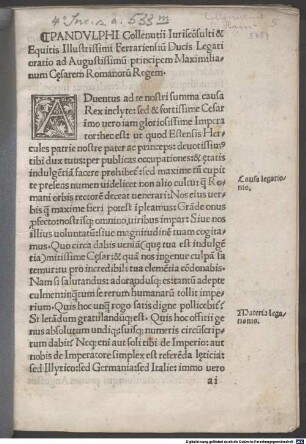 4° Inc. s. a. 533 m
¶PANDVLPHI Collenutii Iuriscõsulti &
Equitis Illustrissimi Ferrariensiũ Ducis Legati
oratio ad Augustissimũ principem Maximilia/
num Cęsarem Romanorũ Regem.
ADuentus ad te nostri summa causa
Rex inclyte: sed & fortissime Cesar
imo uero iam gloriosissime Impera
tor hec est: ut quod Estensis Her
cules patrie nostre pater ac princeps: deuotissimꝰ
tibi dux tuus: per publicas occupationes: & ętatis
indulgẽtiã facere prohibet̃: sed maxime tñ cupit
te preseñs numen uidelicet non alio cultu: q̃ Ro
mani orbis rectorẽ deceat uenerari: Nos eius uer
bis q̃ maxime fieri potest ipleamus: Grãde onus
ꝓfecto: nostrisq; omnino uiribus impar: Siue nos
illius uoluntatẽ: siue magnitudinẽ tuam cogita
mus. Quo circa dabis ueniã (que tua est indulgẽ
tia) mitissime Cęsar: & quã nos ingenue culpã fa
temur: tu pro incredibili tua clemẽtia cõdonabis.
Nam si salutandus: adorandusq; existãti: adepte
culmen:
tium.
terium. Quis hoc unq̃ rogo satis digne pollicebit̃?
Si letãdũ gratulandũq; est. Quis hoc offitii ge
nus absolutum undiq;: suisq; numeris circũscrip
tum dabit? Neq; eni aut soli tibi de Imperio: aut
nobis de Imperatore simplex est referẽda lęticia:
sed Illyrico: sed Germanię: sed Italię: immo uero
Causa legatio-
nis.
Materia lega
tionis.
a i